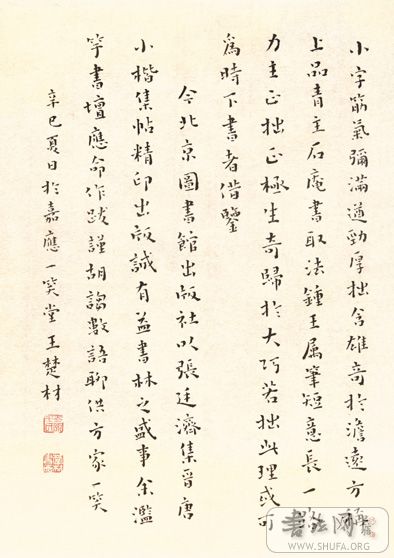 小字筋氣彌滿遒勁厚拙含雄奇於澹遠方稱
上品青主石庵書取法鍾王属筆短意長一路
力主正拙正極生奇歸於大巧若拙此理或可
爲時下書者借鑒
今北京圖書館出版社以張廷濟集晉唐
小楷集帖精印出版誠有益書林之盛事余濫
竽書壇應命作跋謹胡謅數語聊供方家一笑
辛巳夏日於嘉應一笑堂王楚材
書法网
WWW.SHUFA.ORG